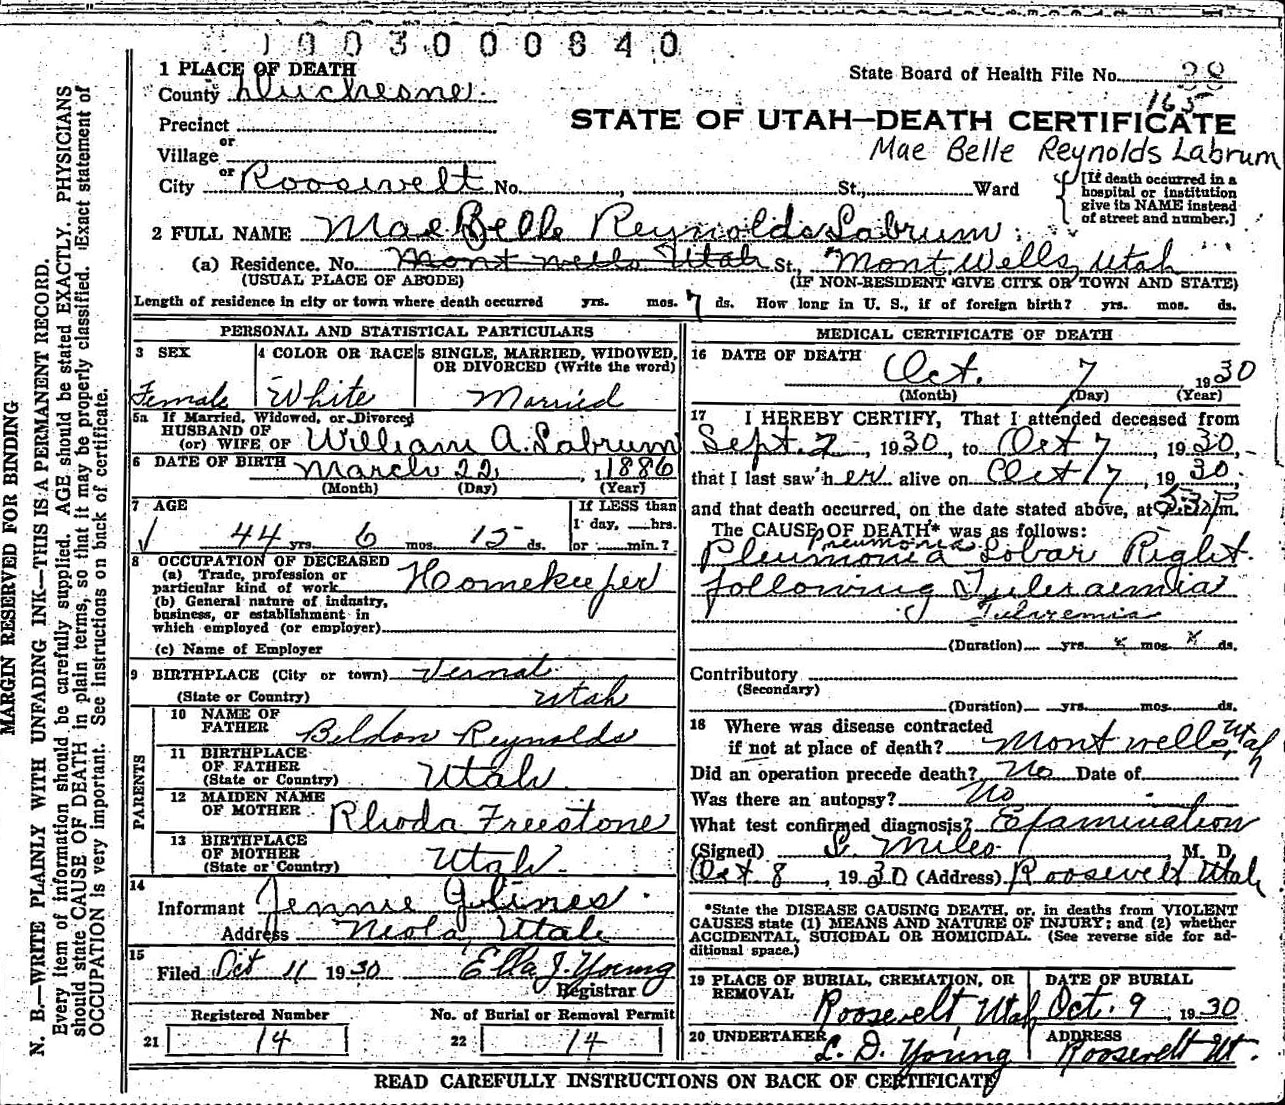 1003000840
1 PLACE OF DEATH
State Board of Health File No. 38
County Duchesne.
165
Precinct
STATE OF UTAH—DEATH CERTIFICATE
or
Village
Mae Belle Reynolds Labrum
or
City Roosevelt No. , St., Ward
[If death occurred in a hospital or institution give its NAME instead of street and number.]
2 FULL NAME Mae Belle Reynolds Labrum
(a) Residence. No. Mont wells Utah St., Mont Wells, Utah
(USUAL PLACE OF ABODE) (IF NON-RESIDENT GIVE CITY OR TOWN AND STATE)
Length of residence in city or town where death occurred yrs. mos. 7 ds. How long in U. S., if of foreign birth? yrs. mos. ds.
PERSONAL AND STATISTICAL PARTICULARS
3 SEX
Female
4 COLOR OR RACE
White
5 SINGLE, MARRIED, WIDOWED, OR DIVORCED (Write the word)
Married
5a If Married, Widowed, or Divorced
HUSBAND OF
(or) WIFE OF William A. Labrum
6 DATE OF BIRTH March 22, 1886
(Month) (Day) (Year)
7 AGE
44 yrs. 6 mos. 15 ds.
If LESS than
1 day, hrs.
or min.?
8 OCCUPATION OF DECEASED
(a) Trade, profession or
particular kind of work Homekeeper
(b) General nature of industry,
business, or establishment in
which employed (or employer)
(c) Name of Employer
9 BIRTHPLACE (City or town) Vernal
(State or Country) Utah
PARENTS
10 NAME OF
FATHER Beldon Reynolds
11 BIRTHPLACE
OF FATHER
(State or Country) Utah
12 MAIDEN NAME
OF MOTHER Rhoda Freestone
13 BIRTHPLACE
OF MOTHER
(State or Country) Utah
14
Informant Jennie Glines
Address Neola, Utah
15
Filed Oct 11 1930 Ella J. Young
Registrar
Registered Number No. of Burial or Removal Permit
21 14 22 14
MEDICAL CERTIFICATE OF DEATH
16 DATE OF DEATH
Oct. 7 1930
(Month) (Day) (Year)
17 I HEREBY CERTIFY, That I attended deceased from
Sept. 2, 1930, to Oct 7, 1930,
that I last saw her alive on Oct 7, 1930,
and that death occurred, on the date stated above, at m.
The CAUSE OF DEATH* was as follows:
pneumonia
Pleumonia Lobar Right
following Tuleraemia
Tularemia
(Duration) yrs. mos. ds.
Contributory
(Secondary)
(Duration) yrs. mos. ds.
18 Where was disease contracted
if not at place of death? Mont wells, Utah
Did an operation precede death? No Date of
Was there an autopsy? No
What test confirmed diagnosis? Examination
(Signed) Miles M. D.
Oct 8, 1930 (Address) Roosevelt Utah
*State the DISEASE CAUSING DEATH, or, in deaths from VIOLENT
CAUSES state (1) MEANS AND NATURE OF INJURY; and (2) whether
ACCIDENTAL, SUICIDAL OR HOMICIDAL. (See reverse side for ad-
ditional space.)
19 PLACE OF BURIAL, CREMATION, OR
REMOVAL
Roosevelt Utah
DATE OF BURIAL
Oct. 9, 1930
20 UNDERTAKER
L. D. Young
ADDRESS
Roosevelt Ut.
READ CAREFULLY INSTRUCTIONS ON BACK OF CERTIFICATE
MARGIN RESERVED FOR BINDING
N. B.—WRITE PLAINLY WITH UNFADING INK—THIS IS A PERMANENT RECORD.
Every item of information should be carefully supplied. AGE should be stated EXACTLY. PHYSICIANS
should state CAUSE OF DEATH in plain terms, so that it may be properly classified. Exact statement of
OCCUPATION is very important. See instructions on back of certificate.